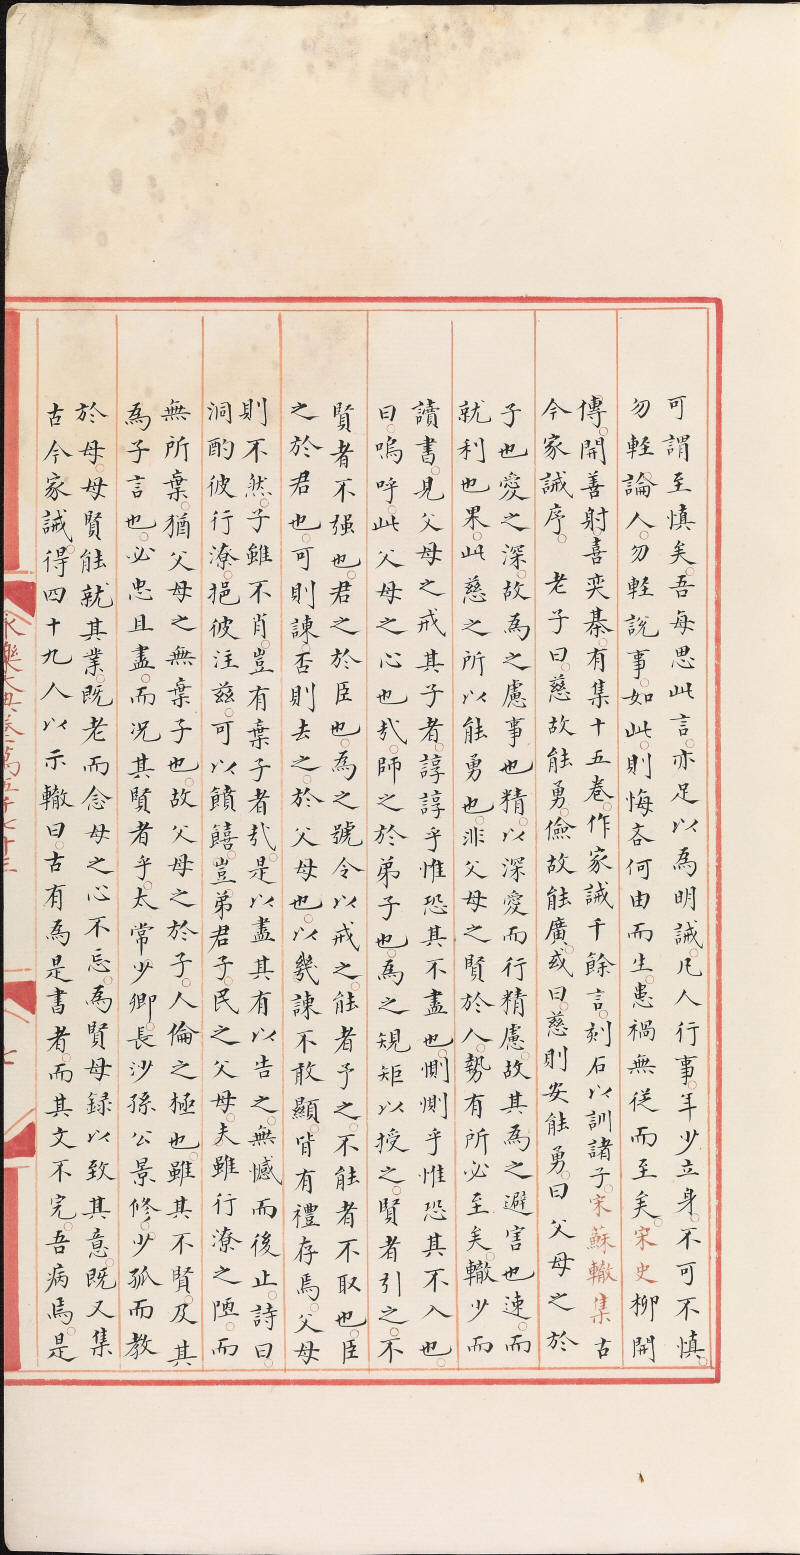 可謂至慎矣。吾每思此言。亦足以為明誡。凡人行事。年少立身。不可不慎。
勿輕論人。勿輕說事。如此。則悔吝何由而生。患禍無從而至矣。宋史柳開
傳。開善射。喜奕棊。有集十五卷。作家誡千餘言。刻石以訓諸子。宋蘇轍集古
今家誡序。老子曰。慈故能勇。儉故能廣。或曰。慈則安能勇。曰父母之於
子也。愛之深。故為之慮事也精。以深愛而行精慮。故其為之避害也速。而
就利也果。此慈之所以能勇也。非父母之賢於人。勢有所必至矣。轍少而
讀書。見父母之戒其子者。諄諄乎惟恐其不盡也。惻惻乎惟恐其不入也。
曰。嗚呼。此父母之心也㢤。師之於弟子也。為之規矩以授之。賢者引之。不
賢者不强也。君之於臣也。為之號令以戒之。能者予之。不能者不取也。臣
之於君也。可則諫。否則去之。於父母也。以幾諫不敢顯。皆有禮存焉。父母
則不然。子雖不肖。豈有棄子者㢤。是以盡其有以告之。無憾而後止。詩曰。
洞酌彼行潦。挹彼注茲。可以饙饎。豈弟君子。民之父母。夫雖行潦之陋。而
無所棄。猶父母之無棄子也。故父母之於子。人倫之極也。雖其不賢。及其
為子言也。必忠且盡。而況其賢者乎。太常少卿。長沙孫公景修。少孤而教
於母。母賢能就其業。既老而念母之心不忘。為賢母録以致其意。既又集
古今家誡。得四十九人以示轍曰。古有為是書者。而其文不完。吾病焉。是
永樂大典卷一萬五千七十三
七